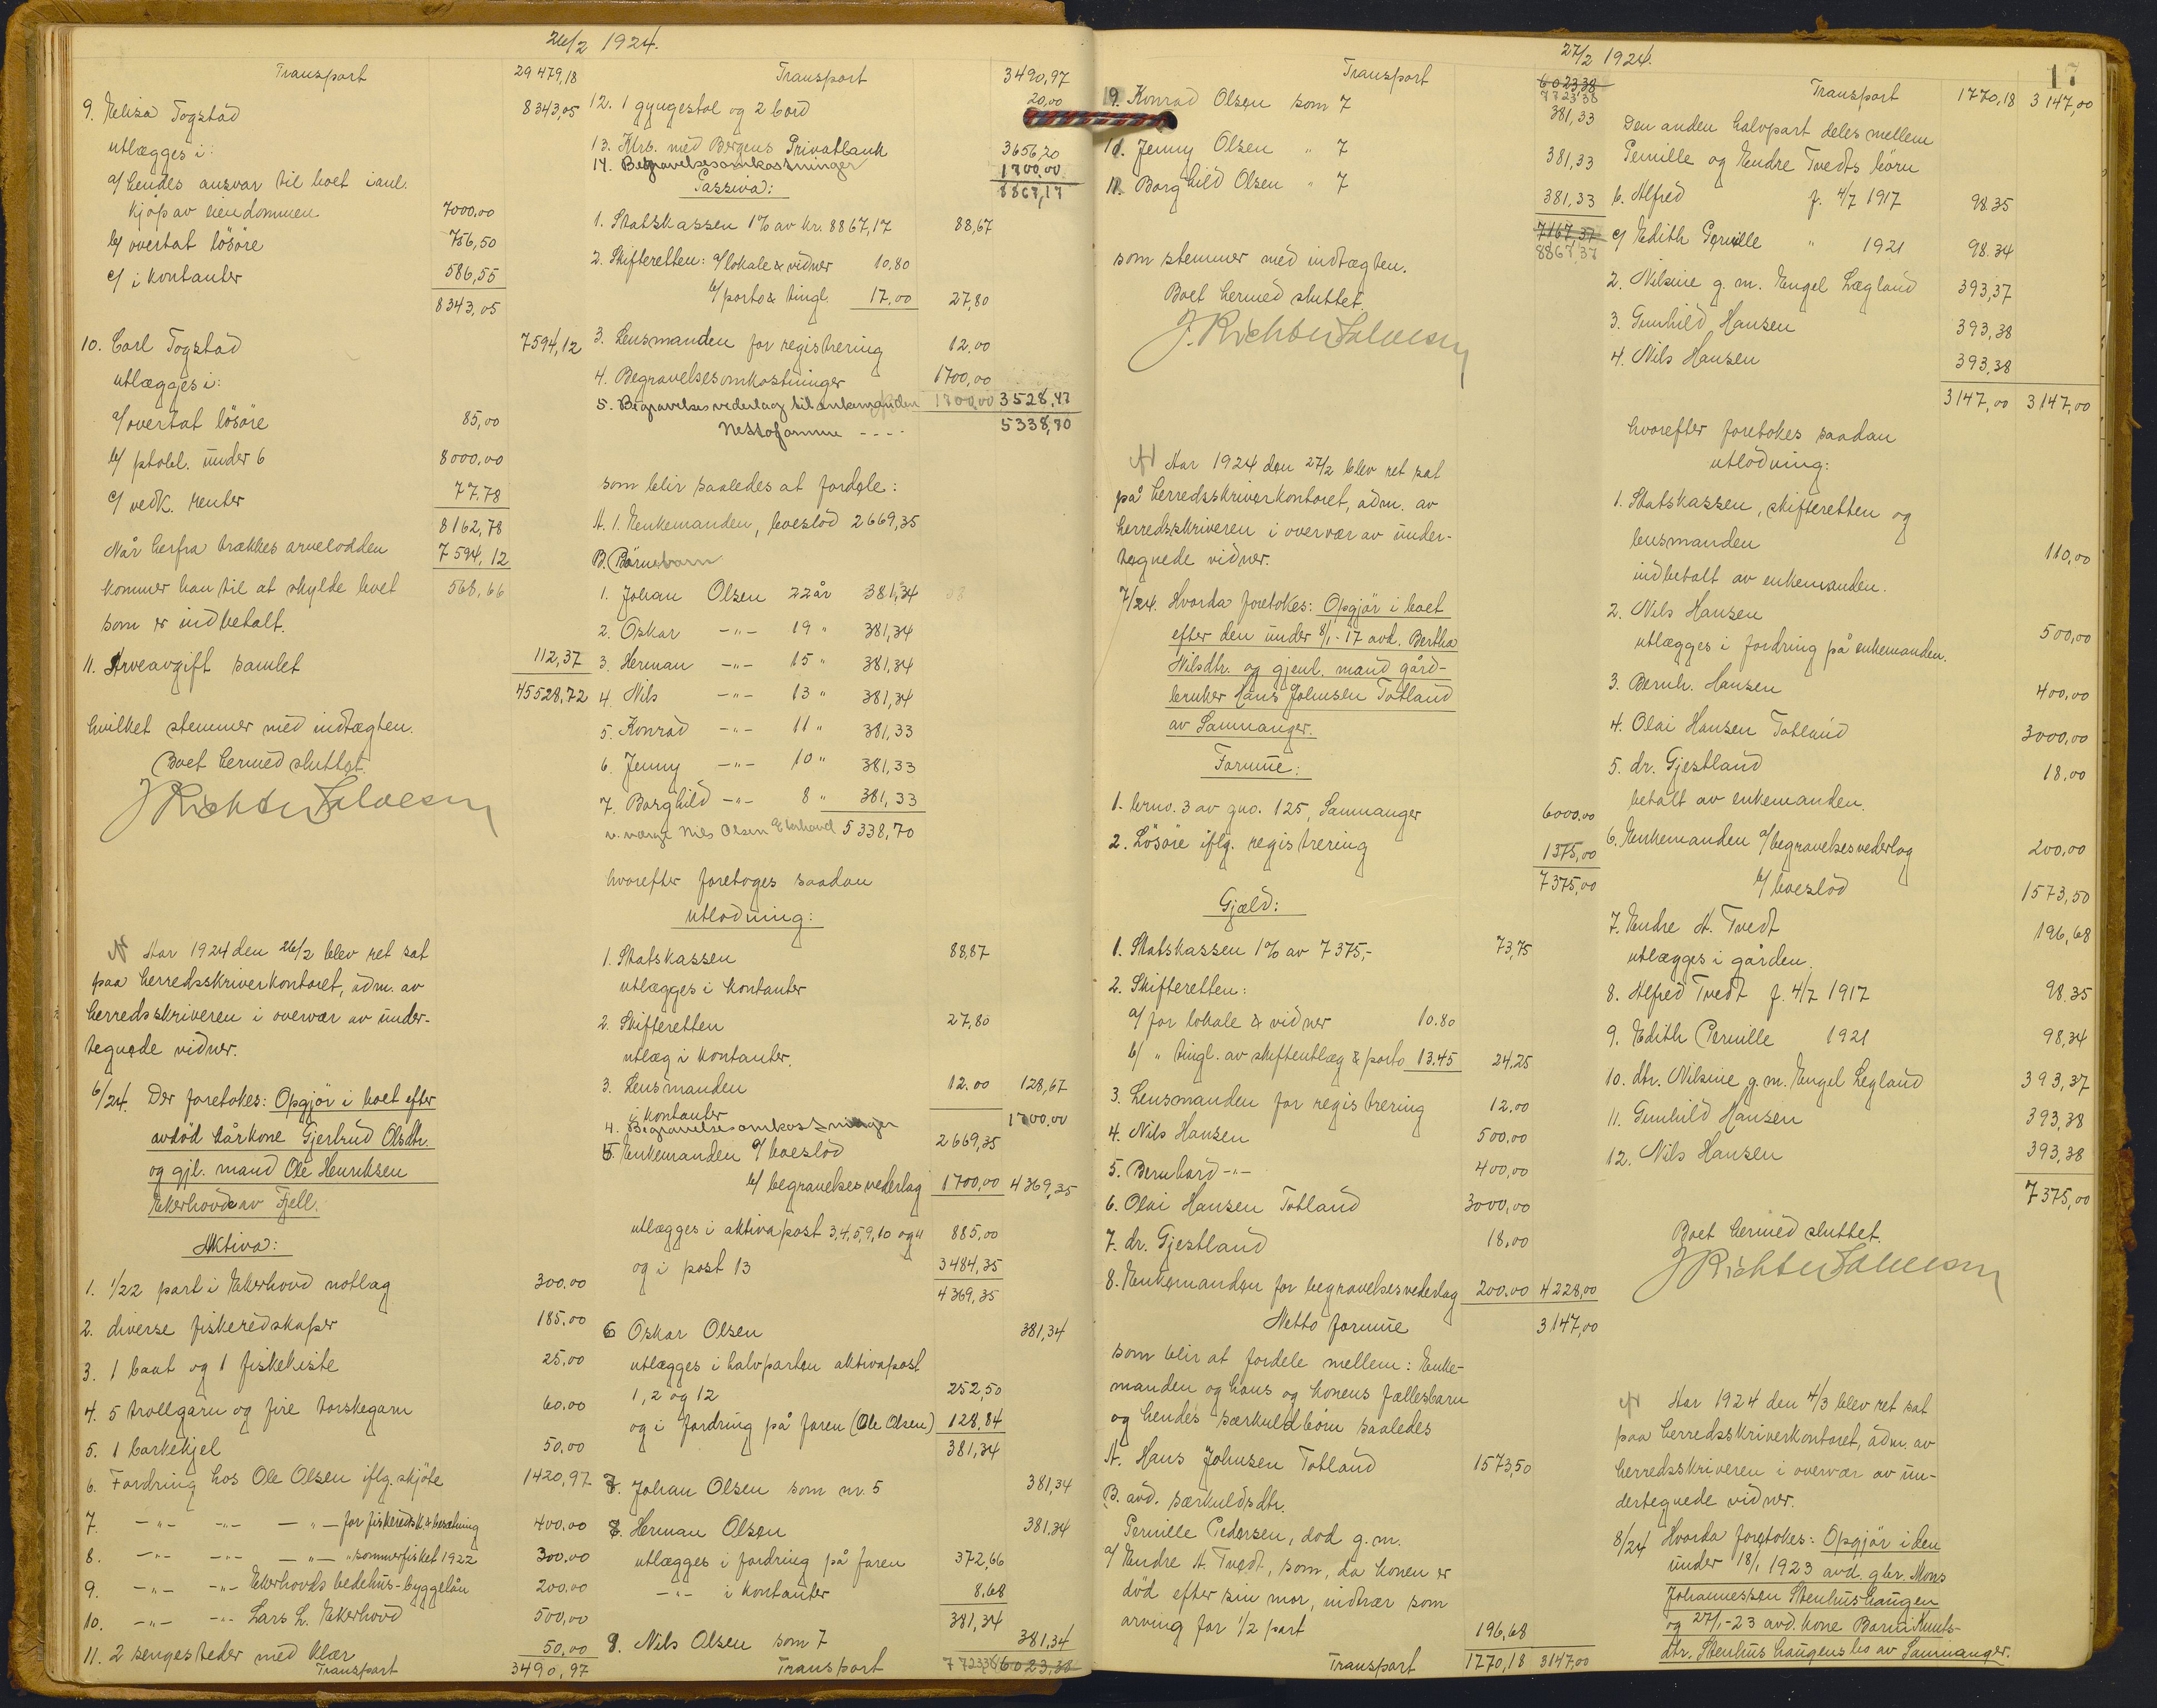 26/2 1924.
Transport 29479,18
9. Eliza Togstad 8343,05
utlægges i:
a/ hendes ansvar til boet i anl.
kjøp av eiendommen 7000,00
b/ overtat løsøre 756,50
c/ i kontanter 586,55
8343,05
10. Carl Togstad 7594,12
utlægges i:
a/ overtat løsøre 85,00
b/ ptobl. under 6 8000,00
c/ vedk. renter 77.78
8162,78
Når herfra trækkes arvelodden 7594,12
kommer han til at skylde boet 568,66
som er indbetalt.
11. Arveavgift samlet 112,37
45528,72
hvilket stemmer med indtægten.
Boet hermed sluttet.
J Richter Salvesen
Aar 1924 den 26/2 blev ret sat
paa herredsskriverkontoret, adm. av
herredsskriveren i overvær av under-
tegnede vidner.
6/24. Der foretokes: Opgjør i boet efter
avdød kårkone Gjertrud Olsdtr.
og gjl. mand Ole Henriksen
Ekerhovd av Fjell.
Aktiva:
1. 1/22 part i Ekerhovd notlag 300.00
2. diverse fiskeredskaper 185.00
3. 1 baat og 1 fiskekiste 25.00
4. 5 trollgarn og fire torskegarn 60.00
5. 1 barkekjel 50,00
6. Fordring hos Ole Olsen iflg. skjøte 1420,97
7. -"- -"- -"- for fiskeredsk. & besætning 400.00
8. -"- -"- -"- " sommerfisket 1922 300.00
9. -"- -"- Ekerhovds bedehus-byggelån 200.00
10. -"- -"- Lars L. Ekerhovd 500,00
11. 2 sengesteder med klær 50,00
Transport 3490,97
Transport 3490,97
12. 1 gyngestol og 2 bord 20,00
13. Ktrb. med Bergens Privatbank 3656,20
14. Begravelsesomkostninger 1700.00
8867,17
Passiva:
1. Statskassen 1% av kr. 8867,17 88,67
2. Skifteretten: a/ lokale & vidner 10.80
b/ porto & tingl. 17.00 27,80
3. Lensmanden for registrering 12.00
4. Begravelsesomkostninger 1700,00
5. Begravelsesvederlag til enkemanden 1700,00 3528,47
Nettoformue ---- 5338,70
som blir saaledes at fordele:
A. 1. Enkemanden, boeslod 2669,35
B. Børnebarn
1. Johan Olsen 22 år 381,34
2. Oskar -"- 19 " 381,34
3. Herman -"- 15 " 381,34
4. Nils -"- 13 " 381,34
5. Konrad -"- 11 " 381,33
6. Jenny -"- 10 " 381,33
7. Borghild -"- 8 " 381,33
v. verge Nils Olsen Ekerhovd 5338,70
hvorefter foretoges saadan
utlodning:
1. Statskassen 88.87
utlægges i kontanter
2. Skifteretten 27,80
utlæg i kontanter.
3. Lensmanden 12.00 128,67
i kontanter
4. Begravelsesomkostninger 1700.00
5. Enkemanden a/ boeslod 2669,35
b/ begravelsesvederlag 1700,00 4369,35
utlægges i aktiva post 3,4,5,9,10 og 11 885,00
og i post 13 3484,35
4369,35
6 Oskar Olsen 381,34
utlægges i halvparten aktivapost
1, 2 og 12 252,50
og i fordring på faren (Ole Olsen) 128,84
381,34
7. Johan Olsen som nr. 5 381,34
8. Herman Olsen 381,34
utlægges i fordring på faren 372,66
-"- i kontanter 8,68
381,34
9. Nils Olsen som 7 381,34
Transport 7723,38 6023,38
27/2 1924.
17
Transport 6023,38
7723,38
19. Konrad Olsen som 7 381,33
10. Jenny Olsen " 7 381,33
11. Borghild Olsen " 7 381,33
7167,37
8867,37
som stemmer med indtægten.
Boet hermed sluttet.
J. Richter Salvesen
Aar 1924 den 27/2 blev ret sat
på herredsskriverkontoret, adm. av
herredsskriveren i overvær av under-
tegnede vidner.
7/24. Hvorda foretokes: Opgjør i boet
efter den under 8/1-17 avd. Bertha
Nilsdtr. og gjenl. mand gård-
bruker Hans Johnsen Totland
av Samnanger.
Formue:
1. brno. 3 av gno. 125, Samnanger 6000.00
2. Løsøre iflg. registrering 1375,00
7375,00
Gjæld:
1. Statskassen 1% av 7375,- 73,75
2. Skifteretten:
a/ for lokale & vidner 10.80
b/ " tingl. av skifteutlæg & porto 13.45 24,25
3. Lensmanden for registrering 12.00
4. Nils Hansen 500.00
5. Bernhard -"- 400,00
6. Olai Hansen Totland 3000,00
7. dr. Gjestland 18,00
8. Enkemanden for begravelsesvederlag 200.00 4228,00
Netto formue 3147,00
som blir at fordele mellem: Enke-
manden og hans og konens fællesbarn
og hendes særkuldbørn saaledes
A. Hans Johnsen Totland 1573,50
B. avd. særkuldsdtr.
Pernille Pedersen, død g.m.
a/ Endre A. Tvedt, som, da konen er
død efter sin mor, indtrær som
arving for 1/2 part 196,68
Transport 1770,18 3147,00
Transport 1770,18 3147,00
Den anden halvpart deles mellem
Pernille og Endre Tvedts børn
b. Alfred f. 4/7 1917 98.35
c/ Edith Pernille " 1921 98.34
2. Nilsine g.m. Engel Lægland 393,37
3. Gunhild Hansen 393,38
4. Nils Hansen 393,38
3147,00 3147,00
hvorefter foretokes saadan
utlodning:
1. Statskassen, skifteretten og
lensmanden 110,00
indbetalt av enkemanden.
2. Nils Hansen 500,00
utlægges i fordring på enkemanden.
3. Bernh. Hansen 400,00
4. Olai Hansen Totland 3000,00
5. dr. Gjestland 18,00
betalt av enkemanden.
6. Enkemanden a/ begravelsesvederlag 200,00
b/ boeslod 1573,50
7. Endre A. Tvedt 196,68
utlægges i gården.
8. Alfred Tvedt f. 4/7 1917 98.35
9. Edith Pernille 1921 98,34
10. dtr. Nilsine g.m. Engel Legland 393,37
11. Gunhild Hansen 393,38
12. Nils Hansen 393,38
7375,00
Boet hermed sluttet.
J Richter Salvesen
Aar 1924 den 4/3 blev ret sat
paa herredsskriverkontoret, adm. av
herredsskriveren i overvær av un-
dertegnede vidner.
8/24 Hvorda foretokes: Opgjør i den
under 18/1 1923 avd. gbr. Mons
Johannessen Stenhushaugen
og 27/1-23 avd. kone Knuts-
dtr. Stenhushaugens bo av Samnanger.